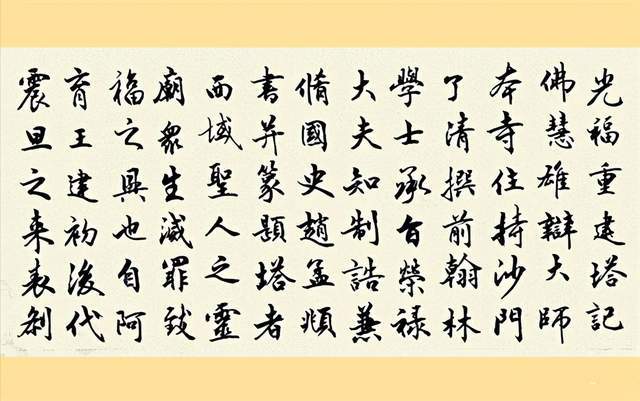 光福重建塔記
佛慧雄辯大師
本寺住持沙門
了清撰前翰林
學士承旨榮禄
大夫知制誥兼
脩國史趙孟頫
書并篆題塔者
西域聖人之靈
廟衆生滅罪致
福之興也自阿
育王建初後代
震旦之来表刹